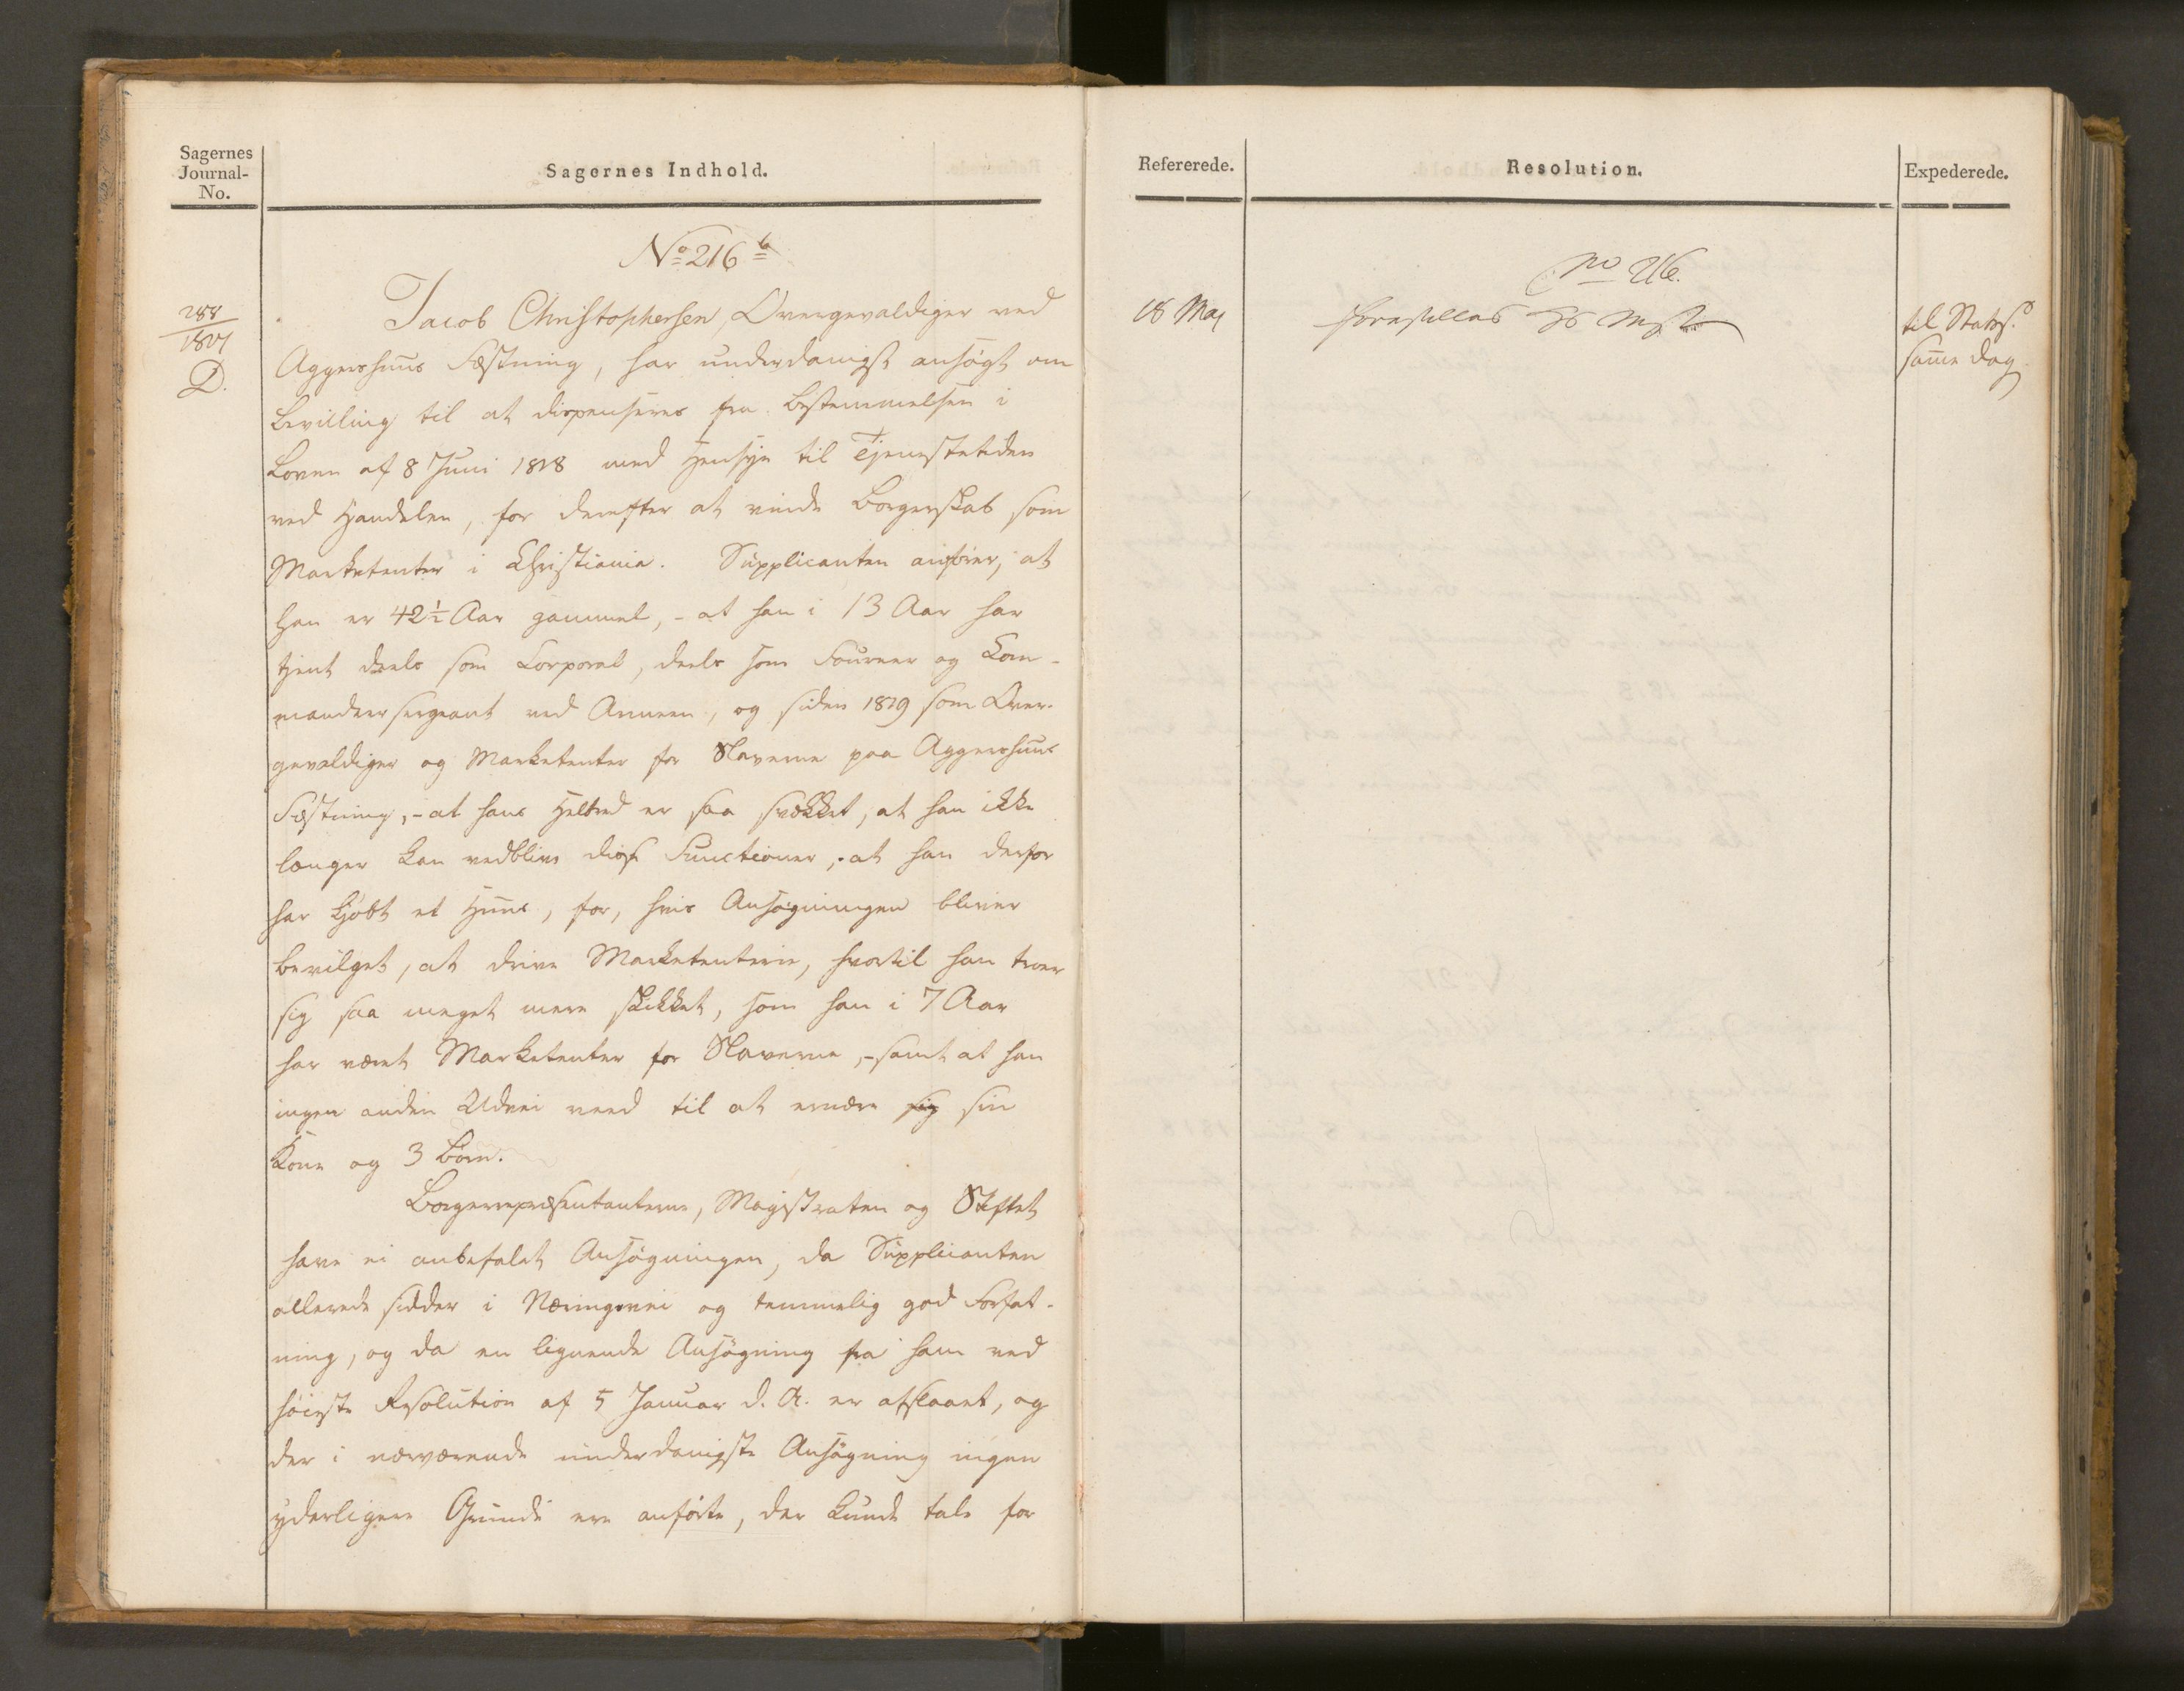 Sagernes
Journal-
No.
Sagernes Indhold.
No 216 b
288
1827
D.
Jacob Christophersen, Overgevaldiger ved
Aggershuus Fæstning, har underdanigst ansøgt om
Bevilling til at dispenseres fra Bestemmelsen i
Loven af 8 Juni 1818 med Hensyn til Tjenestetiden
ved Handelen, for derefter at vinde Borgerskab som
Marketenter i Christiania. Supplicanten anfører, at
han er 42½ Aar gammel, - at han i 13 Aar har
tjent deels som Corporal, deels som Foureer og Com-
mandeersergeant ved Armeen, og siden 1819 som Over-
gevaldiger og Marketenter for Slaverne paa Aggershuus
Fæstning, - at hans Helbred er saa svækket, at han ikke
længer kan vedblive disse Functioner, - at han derfor
har kjøbt et Huus, for, hvis Ansøgningen bliver
bevilget, at drive Marketenterie, hvortil han troer
sig saa meget mere skikket, som han i 7 Aar
har været Marketenter for Slaverne, - samt at han
ingen anden Udvei veed til at ernære sig sin
Kone og 3 Børn.
Borgerrepræsentanterne, Magistraten og Stiftet
have ei anbefalet Ansøgningen, da Supplicanten
allerede sidder i Næringsvei og temmelig god Forfat-
ning, og da en lignende Ansøgning fra ham ved
høieste Resolution af 5 Januar d. A. er afslaaet, og
der i nærværende underdanigste Ansøgning ingen
yderligere Grunde ere anførte, der kunde tale for
Refererede.
Resolution.
Expederede.
No 216.
18 May
forestilles Hs Mjt
til Statss.
samme Dag